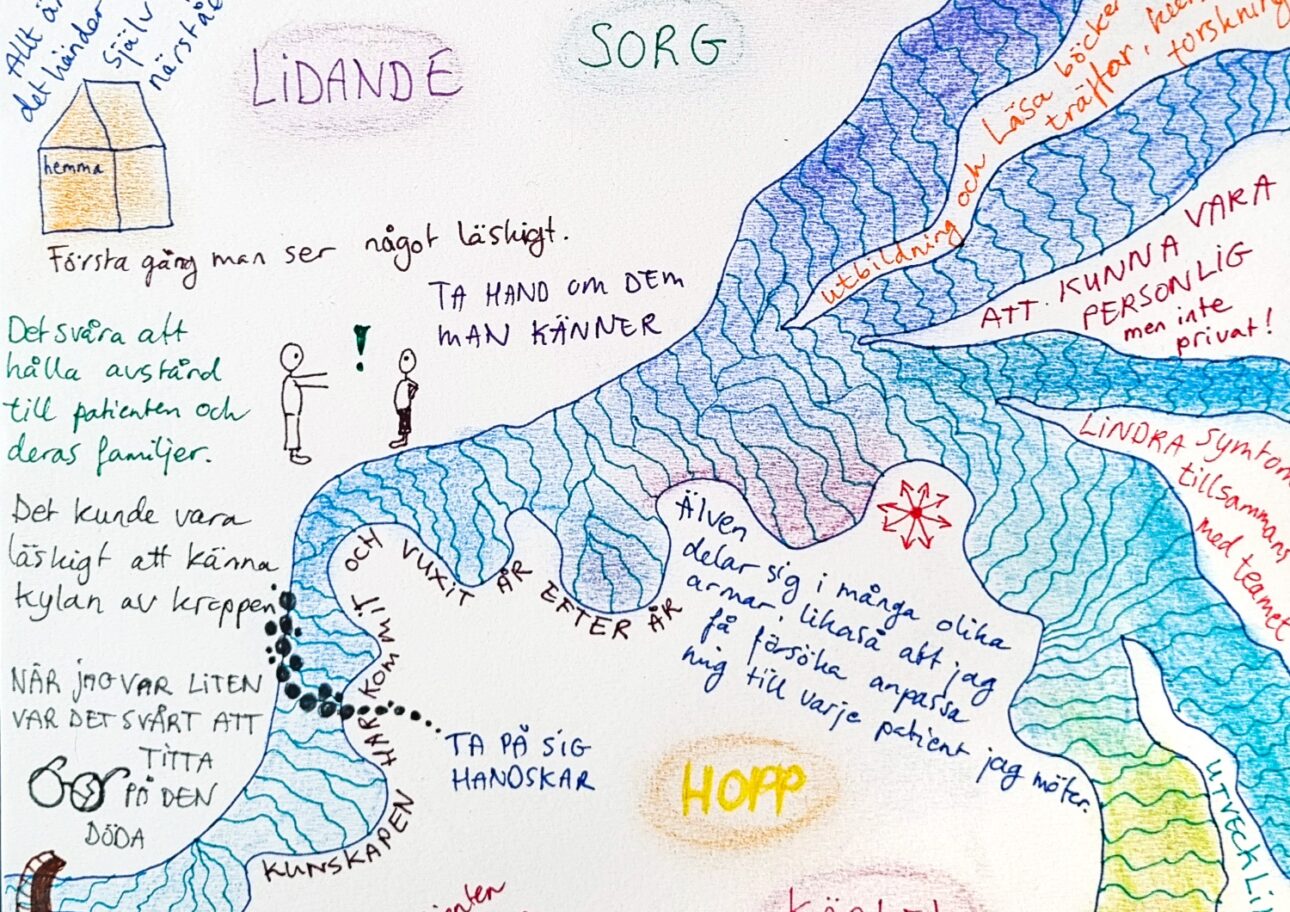 Allt är
det händer
själv
närstå
LIDANDE
SORG
hemma
Första gång man ser något läskigt.
TA HAND OM DEM
MAN KÄNNER
Det svåra att
hålla avstånd
till patienten och
deras familjer.
!
Det kunde vara
läskigt att känna
kylan av kroppen
NÄR JAG VAR LITEN
VAR DET SVÅRT ATT
TITTA
PÅ DEN
DÖDA
TA PÅ SIG
HANDSKAR
KUNSKAPEN HAR KOMMIT OCH VUXIT ÅR EFTER ÅR
Älven
delar sig i många olika
armar, likaså att jag
få försöka anpassa
mig till varje patient jag möter.
HOPP
utbildning och Läsa böcker
träffar,
forskning
ATT KUNNA VARA
PERSONLIG
men inte
privat!
LINDRA symtom
tillsammans
med teamet
UTVECKLI